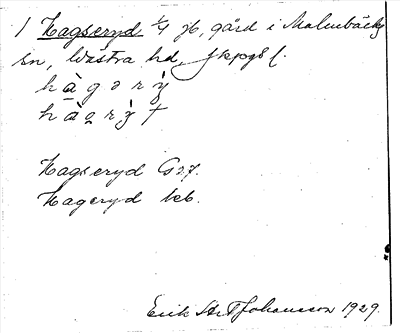 1 Hagseryd 1/4 jb, gård i Malmbäcks
sn, Västra hd, Jkpgs l.
h à g ə r ỳ
h à g r ỳ t
Hagseryd G27.
Hageryd kb.
Erik Johansson 1929.